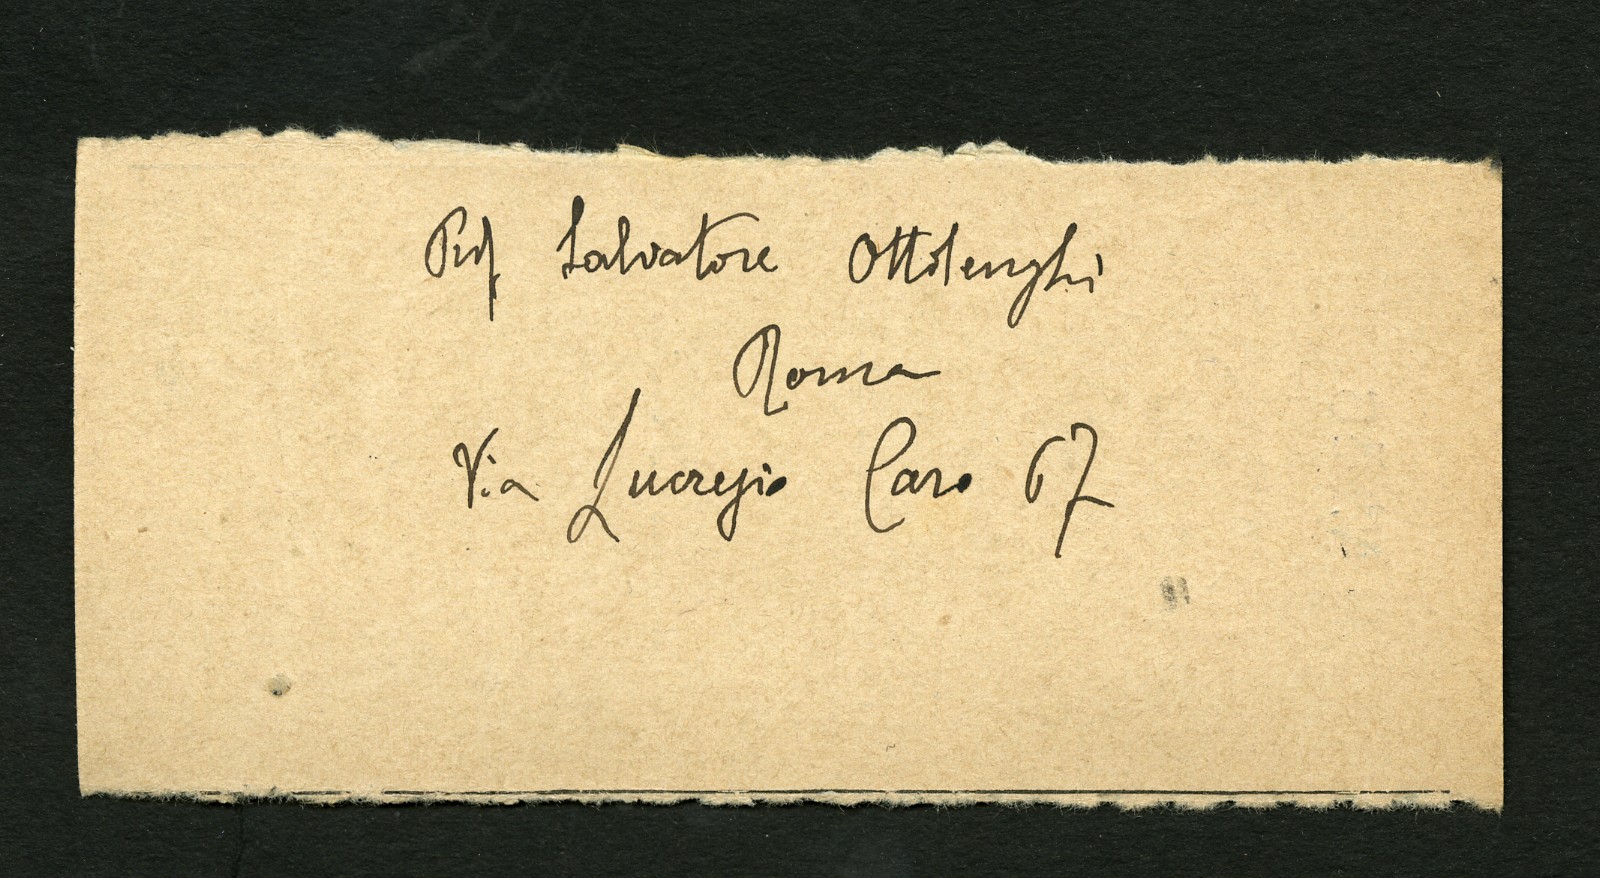 Prof Salvatore Ottolenghi
Roma
Via Lucrezio Caro 67